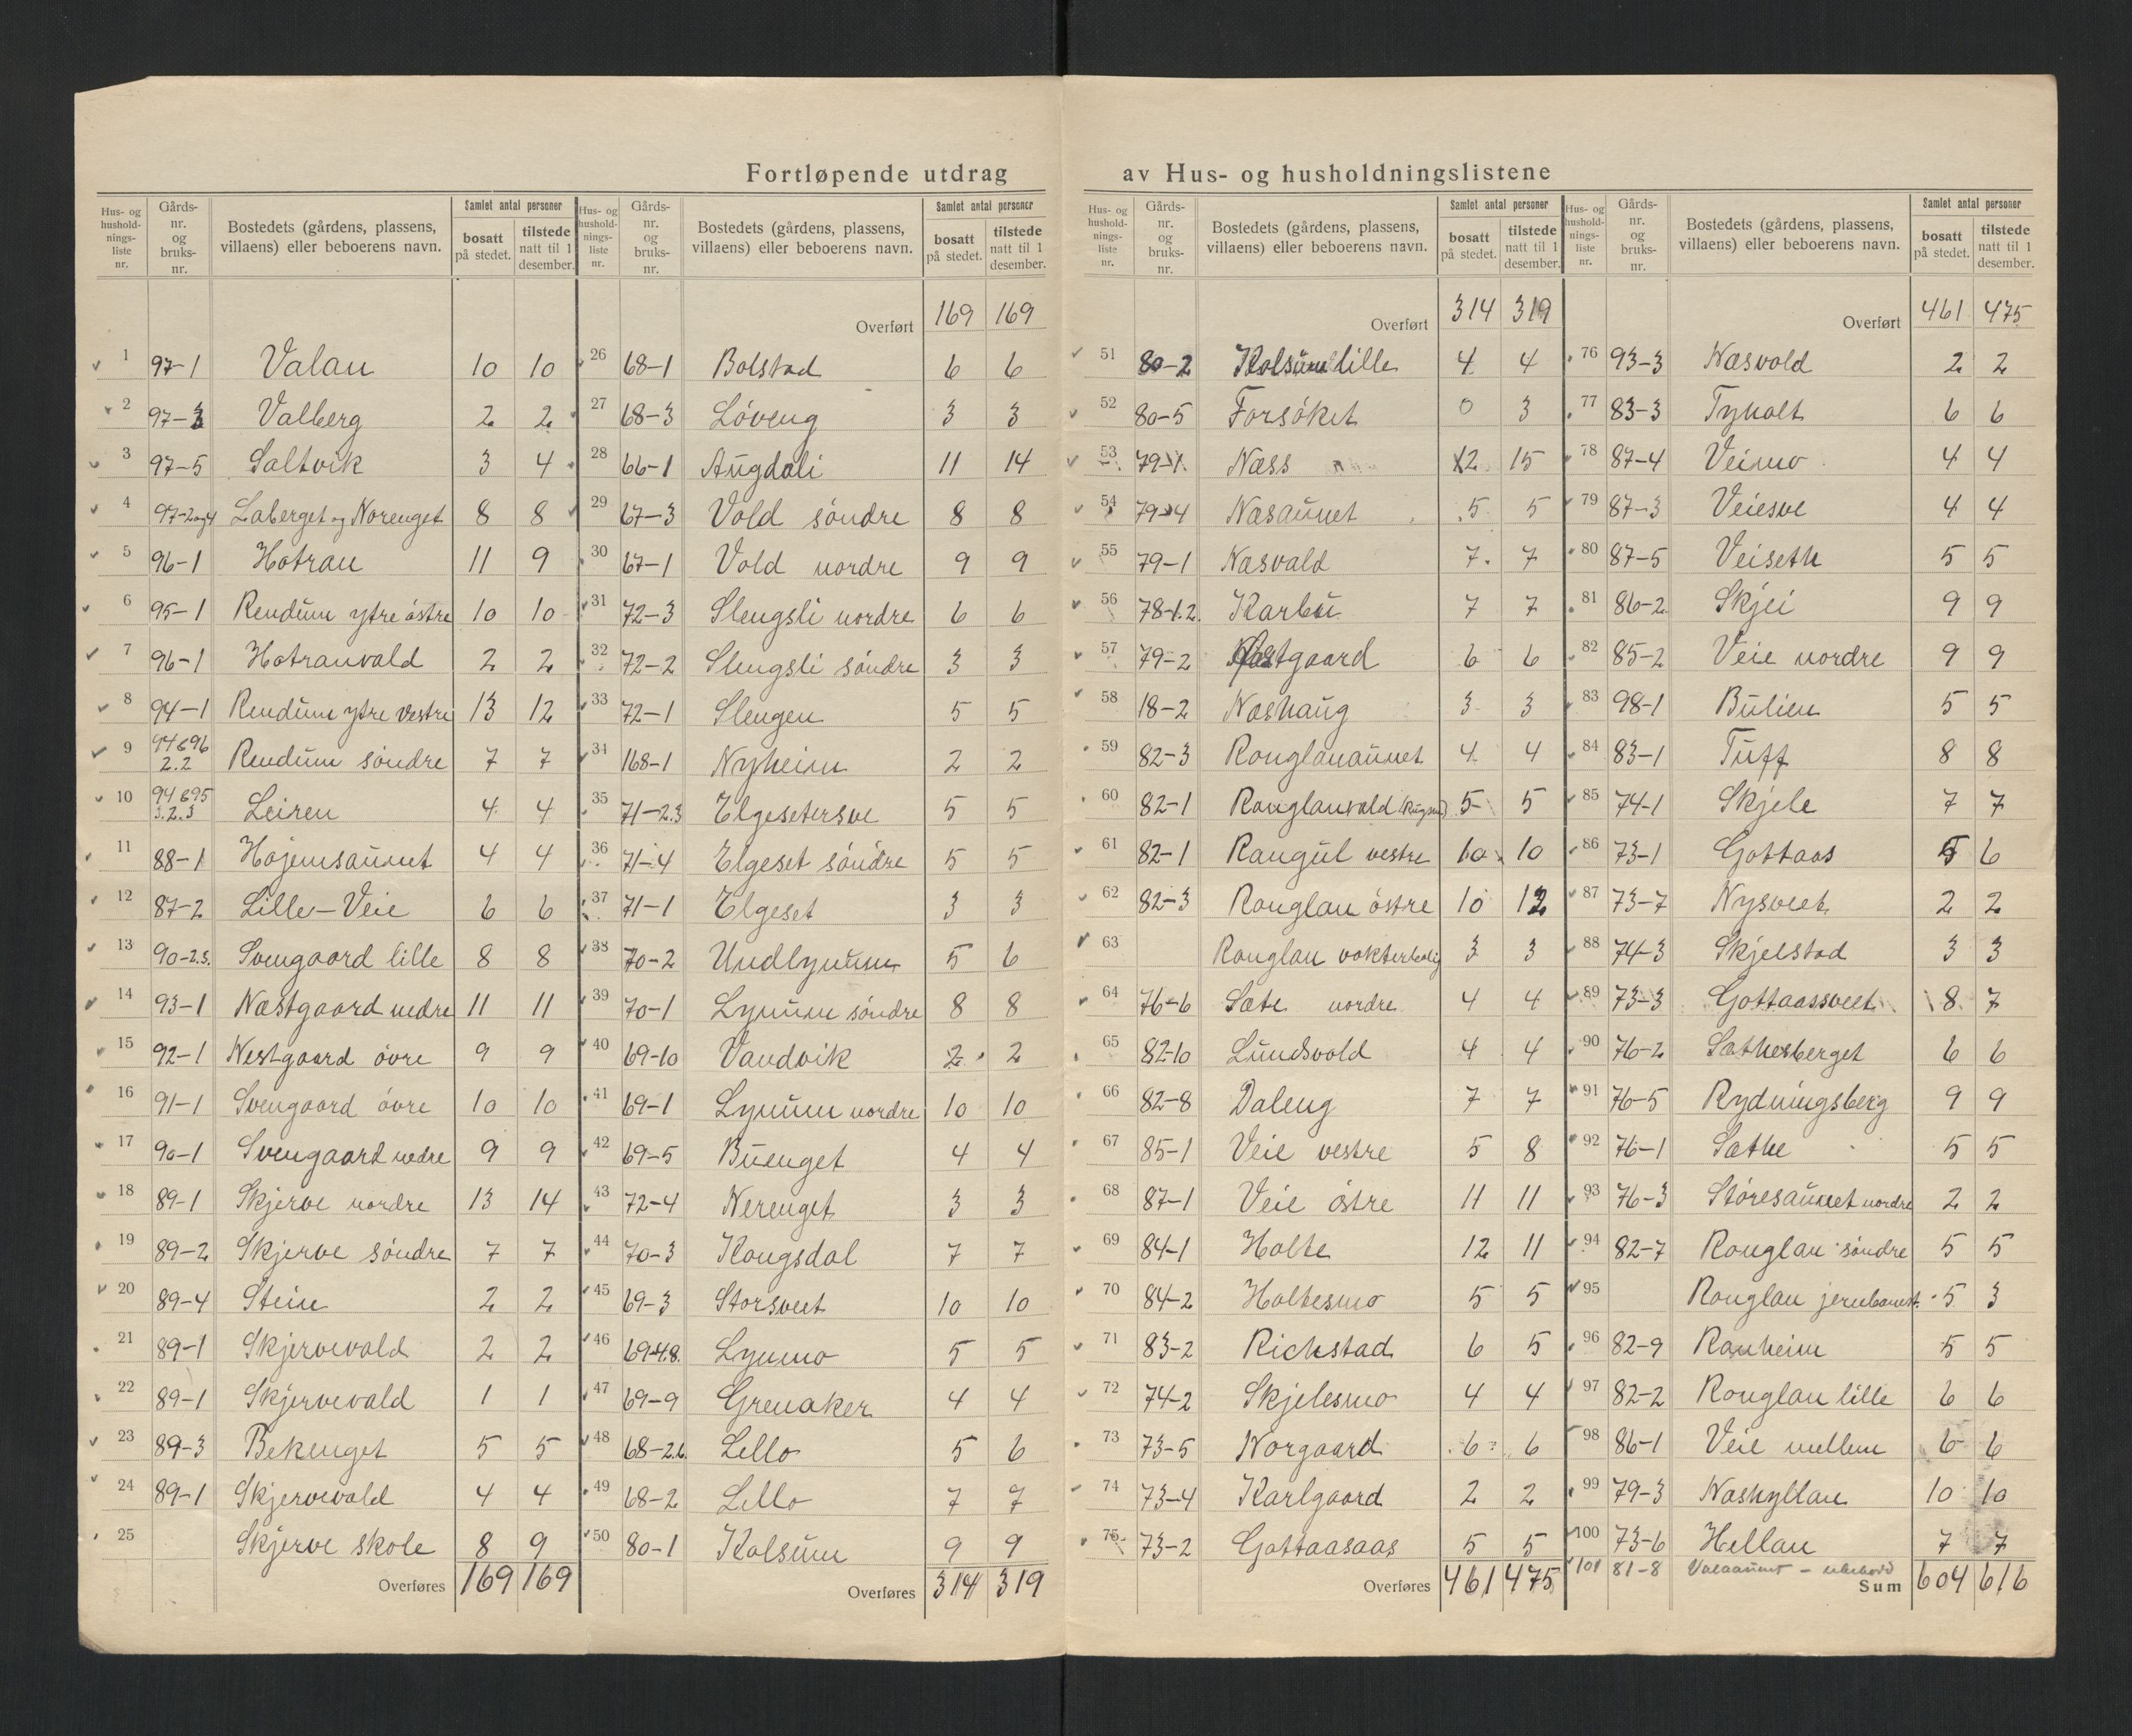 Fortløpende utdrag av Hus- og husholdningslistene
Hus- og hushold-nings-liste nr. | Gårds-nr. og bruks-nr. | Bostedets (gårdens, plassens, villaens) eller beboerens navn. | Samlet antal personer | bosatt på stedet. | tilstede natt til 1 desember.
1 97-1 Valan 10 10
2 97-3 Valberg 2 2
3 97-5 Saltvik 3 4
4 97-2og4 Laberget og Norenget 8 8
5 96-1 Hotran 11 9
6 95-1 Rendum ytre østre 10 10
7 96-1 Hotranvald 2 2
8 94-1 Rendum ytre vestre 13 12
9 94&96 2.2 Rendum søndre 7 7
10 94&95 3.2.3 Leiren 4 4
11 88-1 Hojemsaunet 4 4
12 87-2 Lille-Veie 6 6
13 90-2.3. Svengaard lille 8 8
14 93-1 Næstgaard nedre 11 11
15 92-1 Nestgaard øvre 9 9
16 91-1 Svengaard øvre 10 10
17 90-1 Svengaard nedre 9 9
18 89-1 Skjerve nordre 13 14
19 89-2 Skjerve søndre 7 7
20 89-4 Stein 2 2
21 89-1 Skjervevald 2 2
22 89-1 Skjervevald 1 1
23 89-3 Bekenget 5 5
24 89-1 Skjervevald 4 4
25 Skjerve skole 8 9
Overføres 169 169
Hus- og hushold-nings-liste nr. | Gårds-nr. og bruks-nr. | Bostedets (gårdens, plassens, villaens) eller beboerens navn. | Samlet antal personer | bosatt på stedet. | tilstede natt til 1 desember.
Overført 169 169
26 68-1 Bolstad 6 6
27 68-3 Løveng 3 3
28 66-1 Augdali 11 14
29 67-3 Vold søndre 8 8
30 67-1 Vold nordre 9 9
31 72-3 Slengsli nordre 6 6
32 72-2 Slengsli søndre 3 3
33 72-1 Slengen 5 5
34 168-1 Nyheim 2 2
35 71-2.3 Elgesetersve 5 5
36 71-4 Elgeset søndre 5 5
37 71-1 Elgeset 3 3
38 70-2 Undlynum 5 6
39 70-1 Lynum søndre 8 8
40 69-10 Vandvik 2 2
41 69-1 Lynum nordre 10 10
42 69-5 Buenget 4 4
43 72-4 Nerenget 3 3
44 70-3 Kongsdal 7 7
45 69-3 Storsveet 10 10
46 69-4.8. Lynmo 5 5
47 69-9 Grenaker 4 4
48 68-2.6. Lello 5 6
49 68-2 Lello 7 7
50 80-1 Kolsum 9 9
Overføres 314 319
Hus- og hushold-nings-liste nr. | Gårds-nr. og bruks-nr. | Bostedets (gårdens, plassens, villaens) eller beboerens navn. | Samlet antal personer | bosatt på stedet. | tilstede natt til 1 desember.
Overført 314 319
51 80-2 Kolsum lille 4 4
52 80-5 Forsøket 0 3
53 79-1 Næss 12 15
54 79-4 Næsaunet 5 5
55 79-1 Næsvald 7 7
56 78-1.2. Karbu 7 7
57 79-2 gaard 6 6
58 18-2 Næshaug 3 3
59 82-3 Ronglanaunet 4 4
60 82-1 Ronglanvald 5 5
61 82-1 Rangul vestre 10 10
62 82-3 Ronglan østre 10 12
63 Ronglan vokterbolig 3 3
64 76-6 Sæte nordre 4 4
65 82-10 Lundsvold 4 4
66 82-8 Daleng 7 7
67 85-1 Veie vestre 5 8
68 87-1 Veie østre 11 11
69 84-1 Holte 12 11
70 84-2 Holtesmo 5 5
71 83-2 Rickstad 6 5
72 74-2 Skjelesmo 4 4
73 73-5 Norgaard 6 6
74 73-4 Karlgaard 2 2
75 73-2 Gottaasaas 5 5
Overføres 461 475
Hus- og hushold-nings-liste nr. | Gårds-nr. og bruks-nr. | Bostedets (gårdens, plassens, villaens) eller beboerens navn. | Samlet antal personer | bosatt på stedet. | tilstede natt til 1 desember.
Overført 461 475
76 93-3 Næsvold 2 2
77 83-3 Tyholt 6 6
78 87-4 Veimo 4 4
79 87-3 Veiesve 4 4
80 87-5 Veiseth 5 5
81 86-2 Skjei 9 9
82 85-2 Veie nordre 9 9
83 98-1 Bulien 5 5
84 83-1 Tuff 8 8
85 74-1 Skjele 7 7
86 73-1 Gottaas 5 6
87 73-7 Nysveet 2 2
88 74-3 Skjelstad 3 3
89 73-3 Gottaassveet 8 7
90 76-2 Sæthesberget 6 6
91 76-5 Rydningsberg 9 9
92 76-1 Sæthe 5 5
93 76-3 Støresaunet nordre 2 2
94 82-7 Ronglan søndre 5 5
95 Ronglan jernbanest. 5 3
96 82-9 Ranheim 5 5
97 82-2 Ronglan lille 6 6
98 86-1 Veie mellem 6 6
99 79-3 Næshyllan 10 10
100 73-6 Hellan 7 7
101 81-8 Valaaunet - ubebodd
Sum 604 616